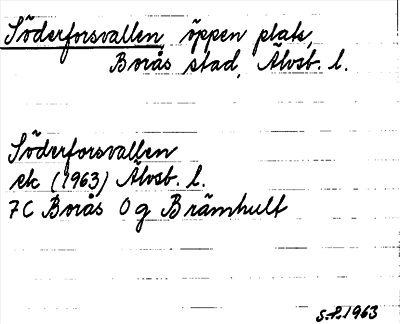 Söderforsvallen, öppen plats,
Borås stad, Älvsb. l.
Söderforsvallen
ek (1963) Älvsb. l.
7C Borås 0g Brämhult
S.P. 1963